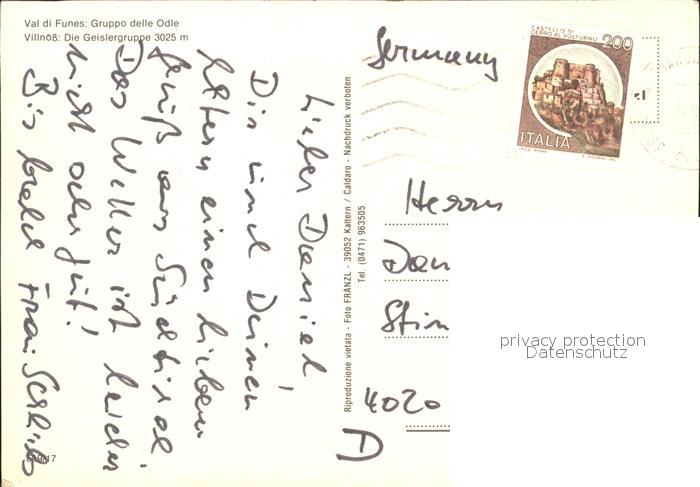 Val di Funes: Gruppo delle Odle
Villnöß: Die Geislergruppe 3025 m
Lieber Daniel,
Dir und Deinen
Eltern einen lieben
Gruß aus Südtirol
Das Wetter ist leider
nicht sehr gut!
Bis bald Frau
519/17
Riproduzione vietata - Foto FRANZL - 39052 Kaltern / Caldaro - Nachdruck verboten
Tel. (0471) 963505
Germany
CASTELLO DI
CERRO AL VOLTURNO
200
ITALIA
Herrn
Dan
Stin
4020
D
privacy protection
Datenschutz